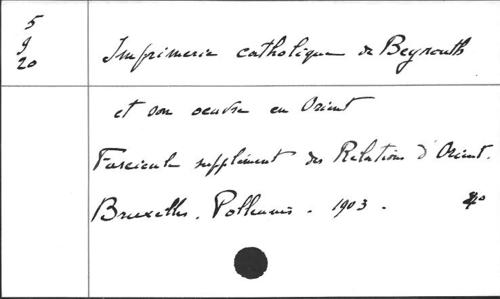 5
9
20
Imprimerie catholique de Beyrouth
et son oeuvre en Orient
Fascicule supplément des Relations d'Orient.
Bruxelles. Polleunis. 1903. 4º